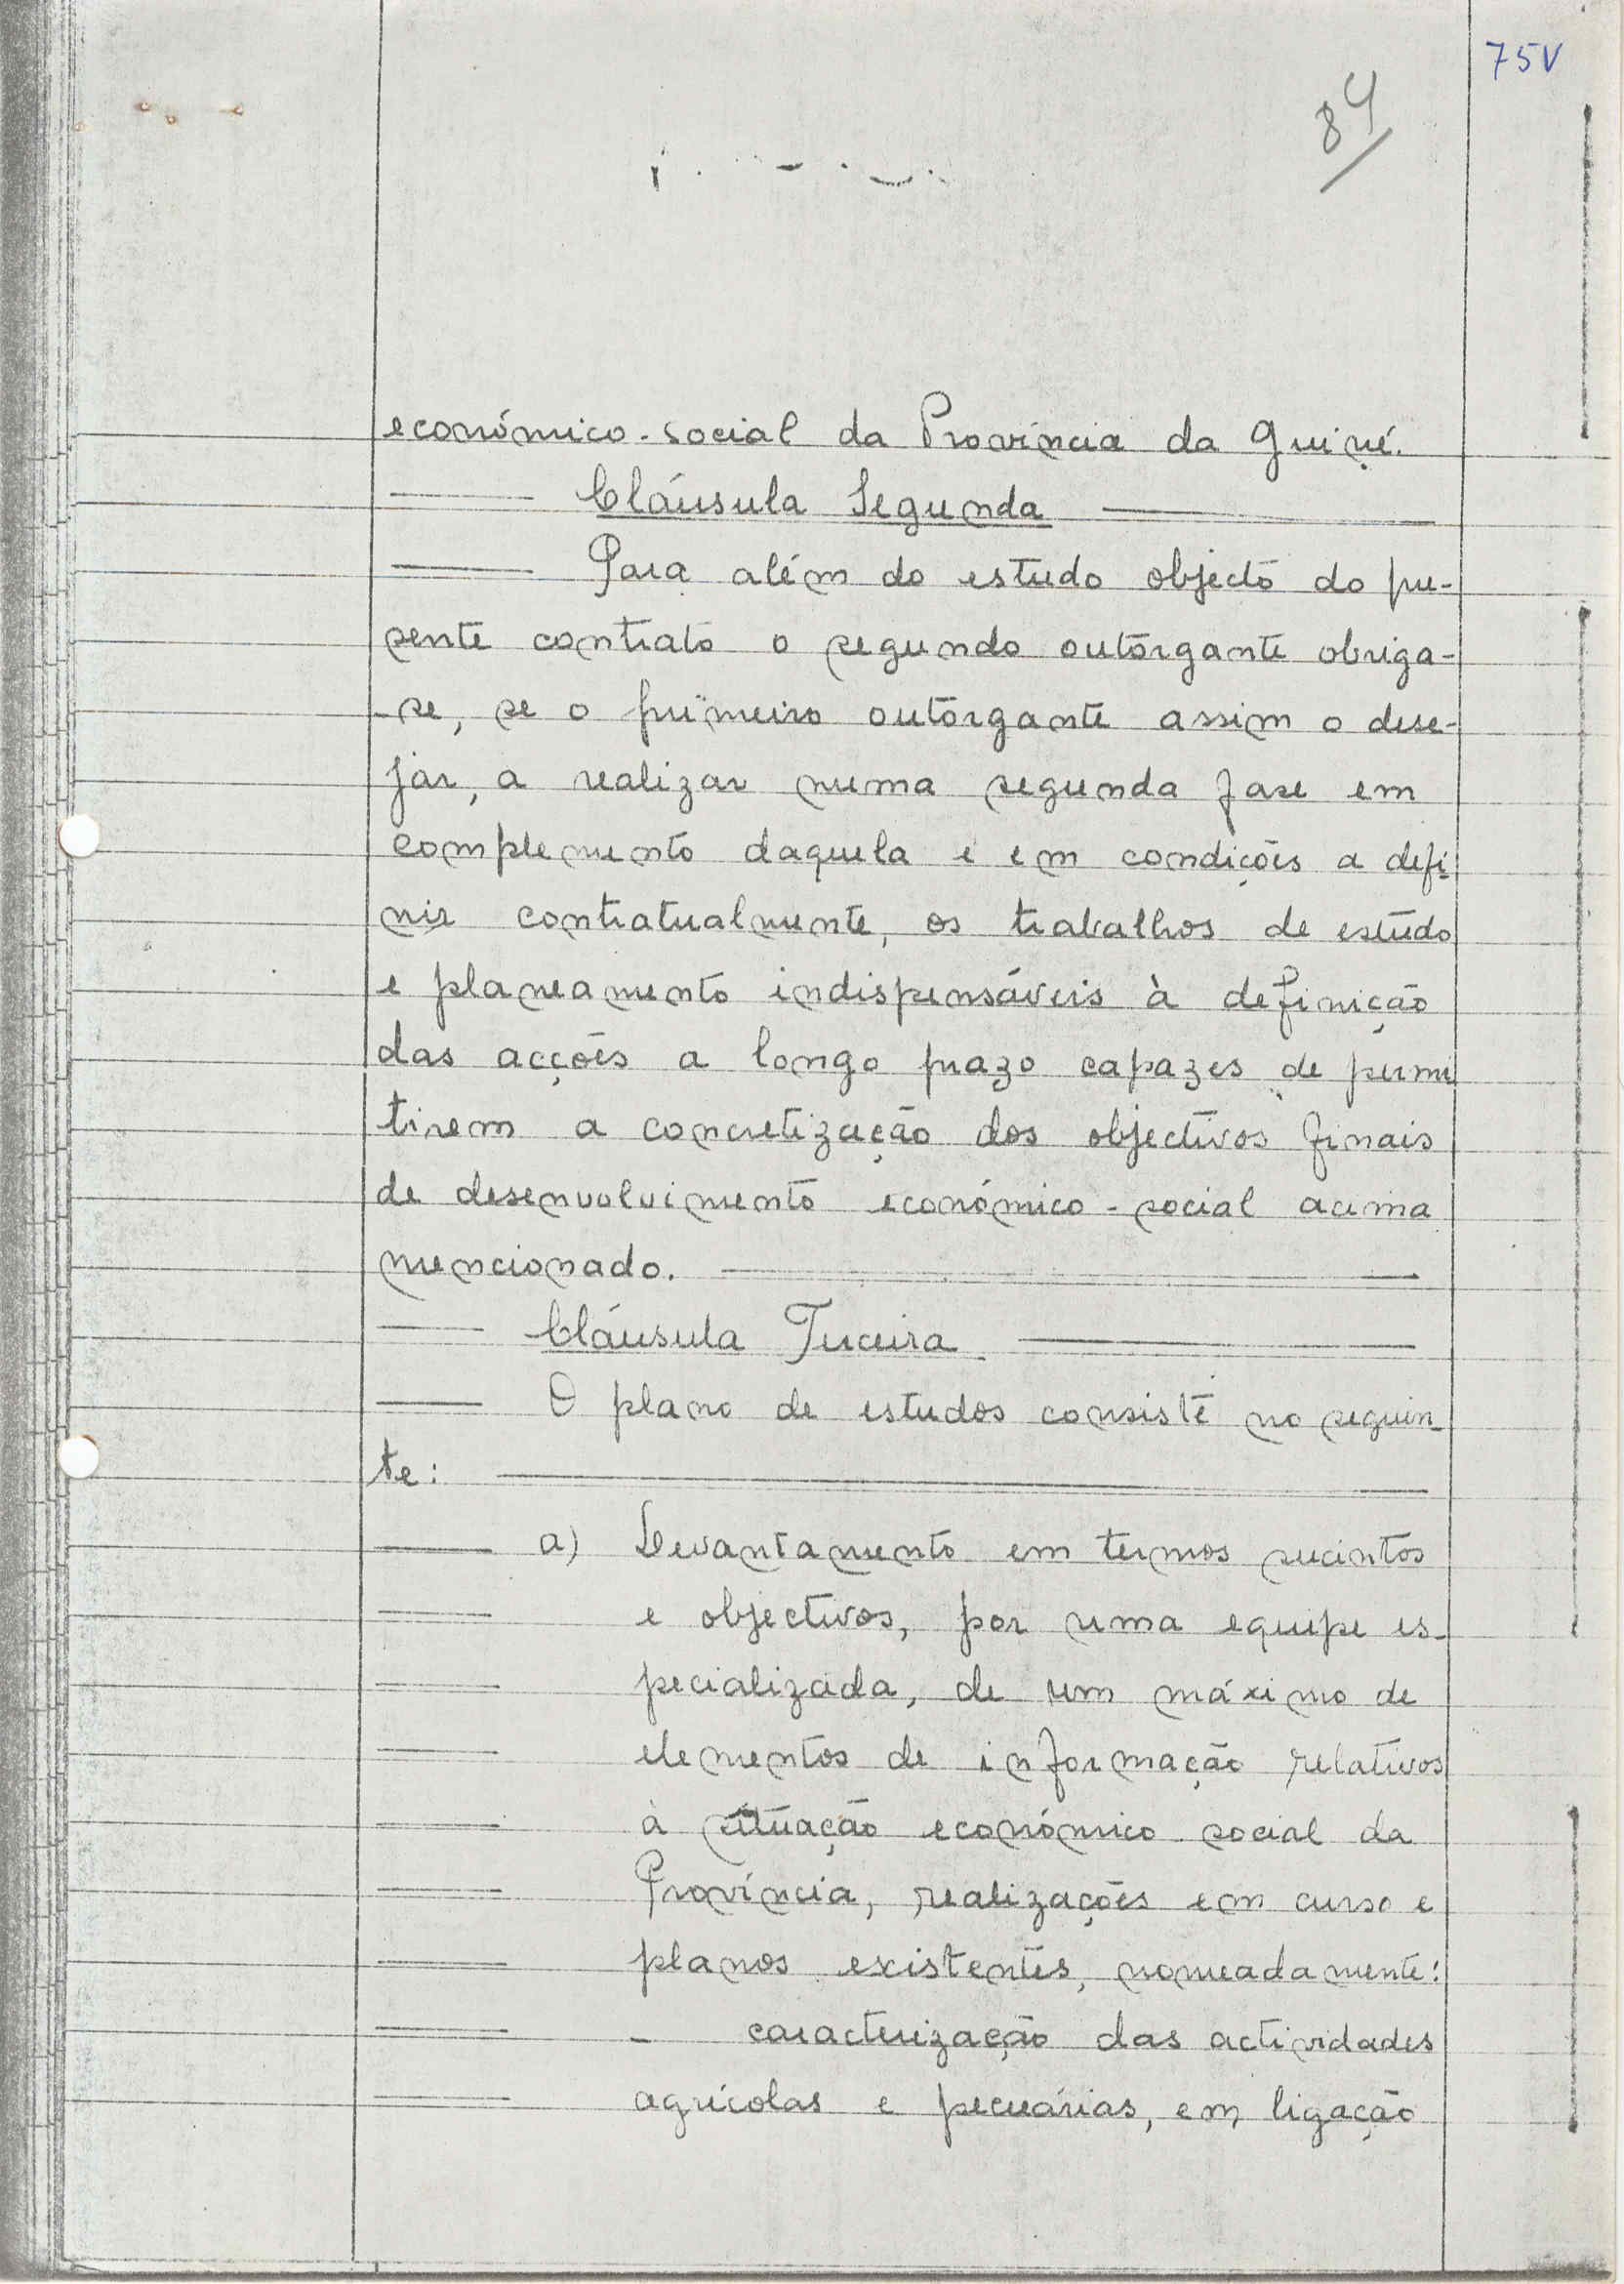 75V
84
económico-social da Província da Guiné.
Cláusula Segunda
Para além do estudo objecto do pre-
sente contrato o segundo outorgante obriga-
-se, se o primeiro outorgante assim o dese-
jar, a realizar numa segunda fase em
complemento daquela e em condições a defi-
nir contratualmente, os trabalhos de estudo
e planeamento indispensáveis à definição
das acções a longo prazo capazes de permi
tirem a concretização dos objectivos finais
de desenvolvimento económico-social acima
mencionado.
Cláusula Terceira
O plano de estudos consiste no seguin-
te:
a) Levantamento em termos sucintos
e objectivos, por uma equipe es-
pecializada, de um máximo de
elementos de informação relativos
à situação económico social da
Província, realizações em curso e
planos existentes, nomeadamente:
- caracterização das actividades
agrícolas e pecuárias, em ligação